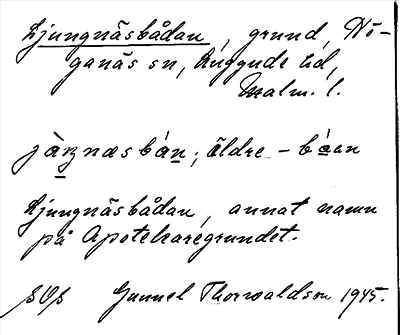 Ljungnäsbådan, grund, Hö-
ganäs sn, Luggude hd,
Malm. l.
jàŋnæsbán; äldre - båen
Ljungnäsbådan, annat namn
på Apotekaregrundet.
Gunnel Thorwaldson 1945.